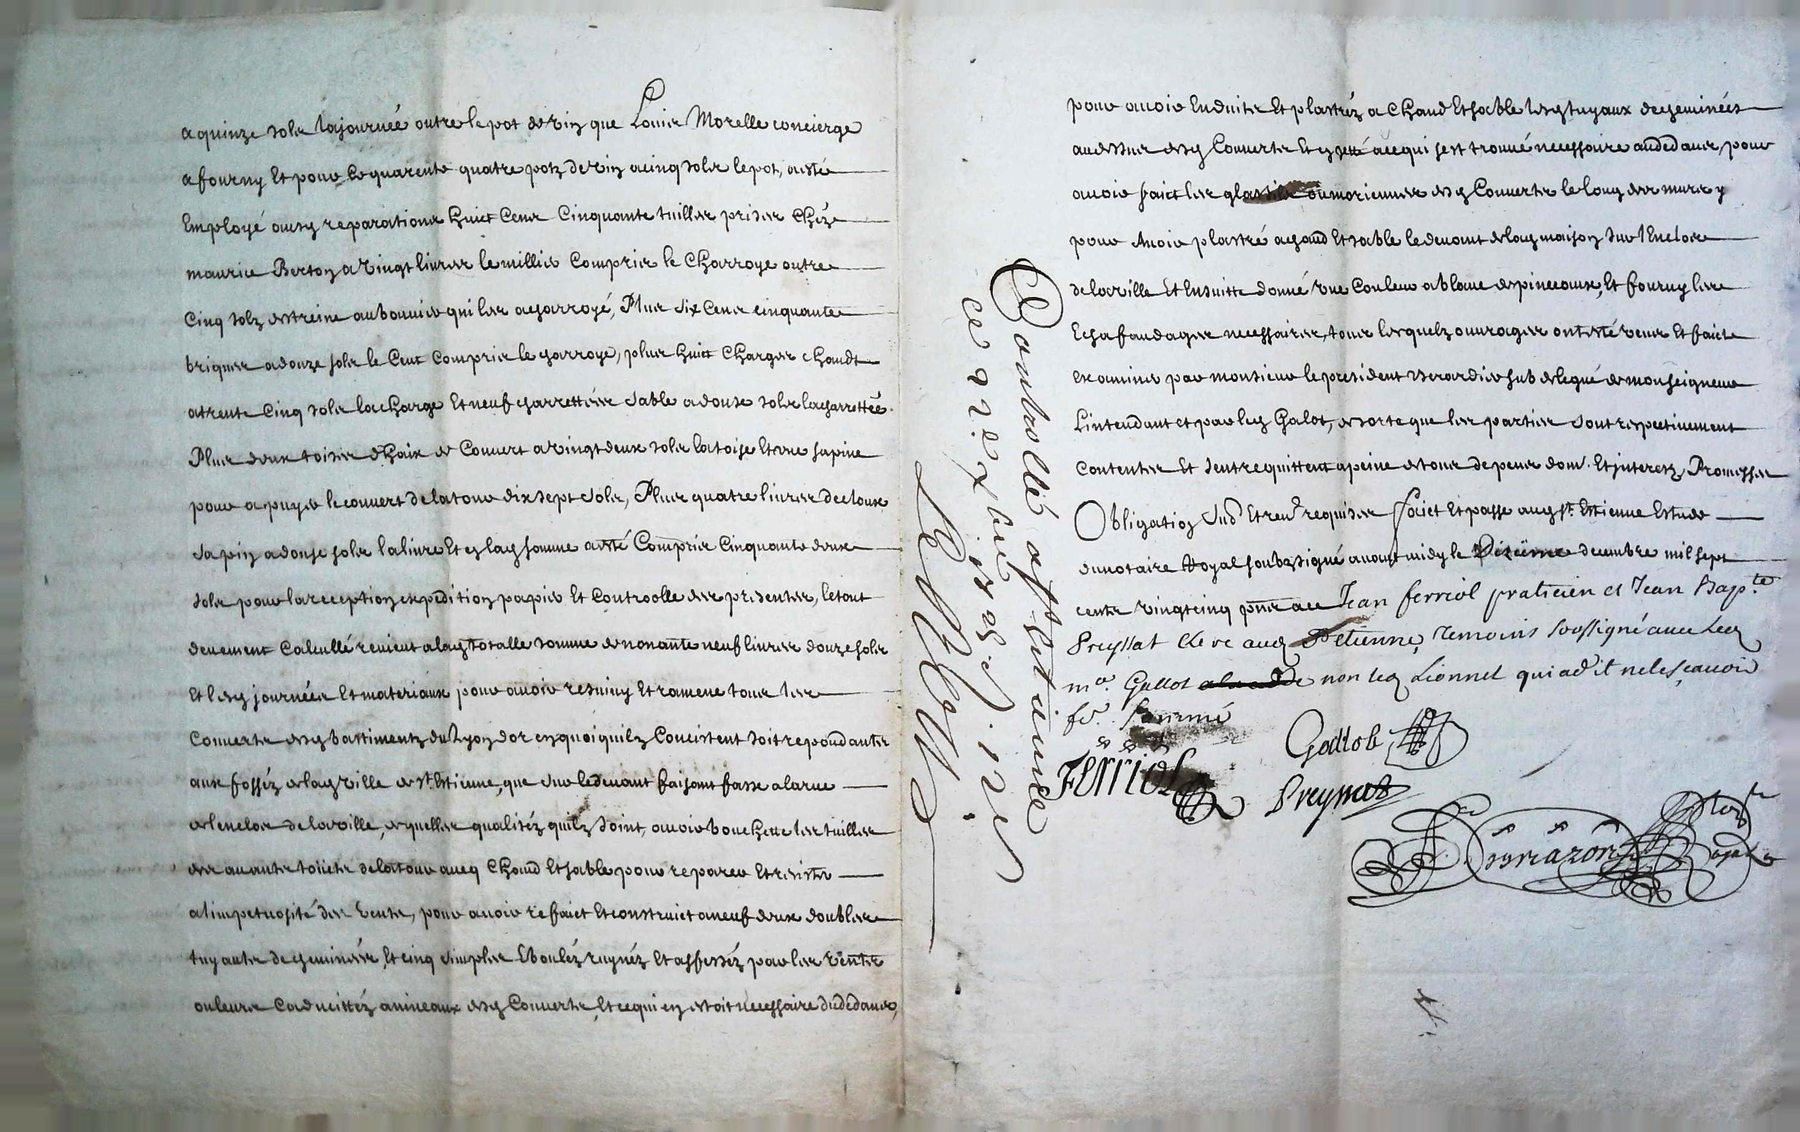 a quinze solz la journée outre le pot de vin que Louis Morelle concierge
a fourny Et pour les quarente quatre potz de vin a cinq solz le pot, a esté
Employé ausd reparations huict Cens Cinquante tuilles prises chéz
maurice Berton a vingt livres le millier Compris le Charroye outre
Cinq solz destreine au bouvier qui les a charroyé, Plus six Cens cinquante
briques a douze solz le Cent Compris le charroye, plus huict Charges chaudt
a trente Cinq solz la charge Et neuf charrettées sable a douse solz la charrettée
Plus deux toises de Couvert a vingt deux solz la toise Et une sapine
pour apuyer le couvert de la tour dix sept solz, Plus quatre livres de cloux
sapin a douse solz la livre Et en lad somme a esté Compris Cinquante deux
solz pour la reception expedition papier Et Controolle des presentes, le tout
deuement Calcullé revient a lad totalle somme de nonante neuf livres douze solz
Et lesd journées Et materiaux pour avoir resuivy Et ramené tous les
Couverts desd bastiments du Lyon dor en quoi quilz Concistent soit repondantz
aux fosséz de lad ville de St Estienne, que sur le devant faisant fasse a la rue
de lenclos de la ville, de quelles qualitéz quilz soint, avoir bouchette les tuilles
des avants toicts de la tour avec Chaud Et sable pour reparer Et resister
a limpetuosité des vents, pour avoir refaict Et construict a neuf deux doubles
tuyauts de cheminées, Et cinq simples Eboulés ruynéz Et affesséz par les vents
ou leurs Caducittéz a niveaux desd Couverts, Et ce qui en estoit necessaire du dedans,
Controllé a st etienne
ce 1725
pour avoir Enduits Et plastréz a Chaud Et sable lesd tuyaux de cheminées
au dessus desd Couverts Et ce qui sest trouvé necessaire au dedans, pour
avoir faict les ou moriennes desd Couverts le long des murs
pour avoir plastré a chaud Et sable le devant de lad maison sur lEnclos
de la ville Et Ensuitte donné une Couleur a blanc de pinceaux, Et fourny les
Echafaudages necessaires, tous lesquelz ouvrages ont esté veus Et faicts
examiner par monsieur le president subdelegué de monseigneur
Lintendant et par led Galot, de sorte que les parties sont respectivement
Contentes Et sentrequittent a peine de tous depens dom. Et interetz, Promesses
Obligation Et requises faict Et passé aud St. Estienne Estude
du notaire Royal soubzsigné avant midy le Dixieme decembre mil sept
cents vingt cinq Jean ferriol praticien et Jean Bapte
Preynat clerc aud St etienne, temoins soussigné avec led
mre Gallot non led Lionnet qui a dit ne le sçavoir
Ferriol
Gallot
Preynat